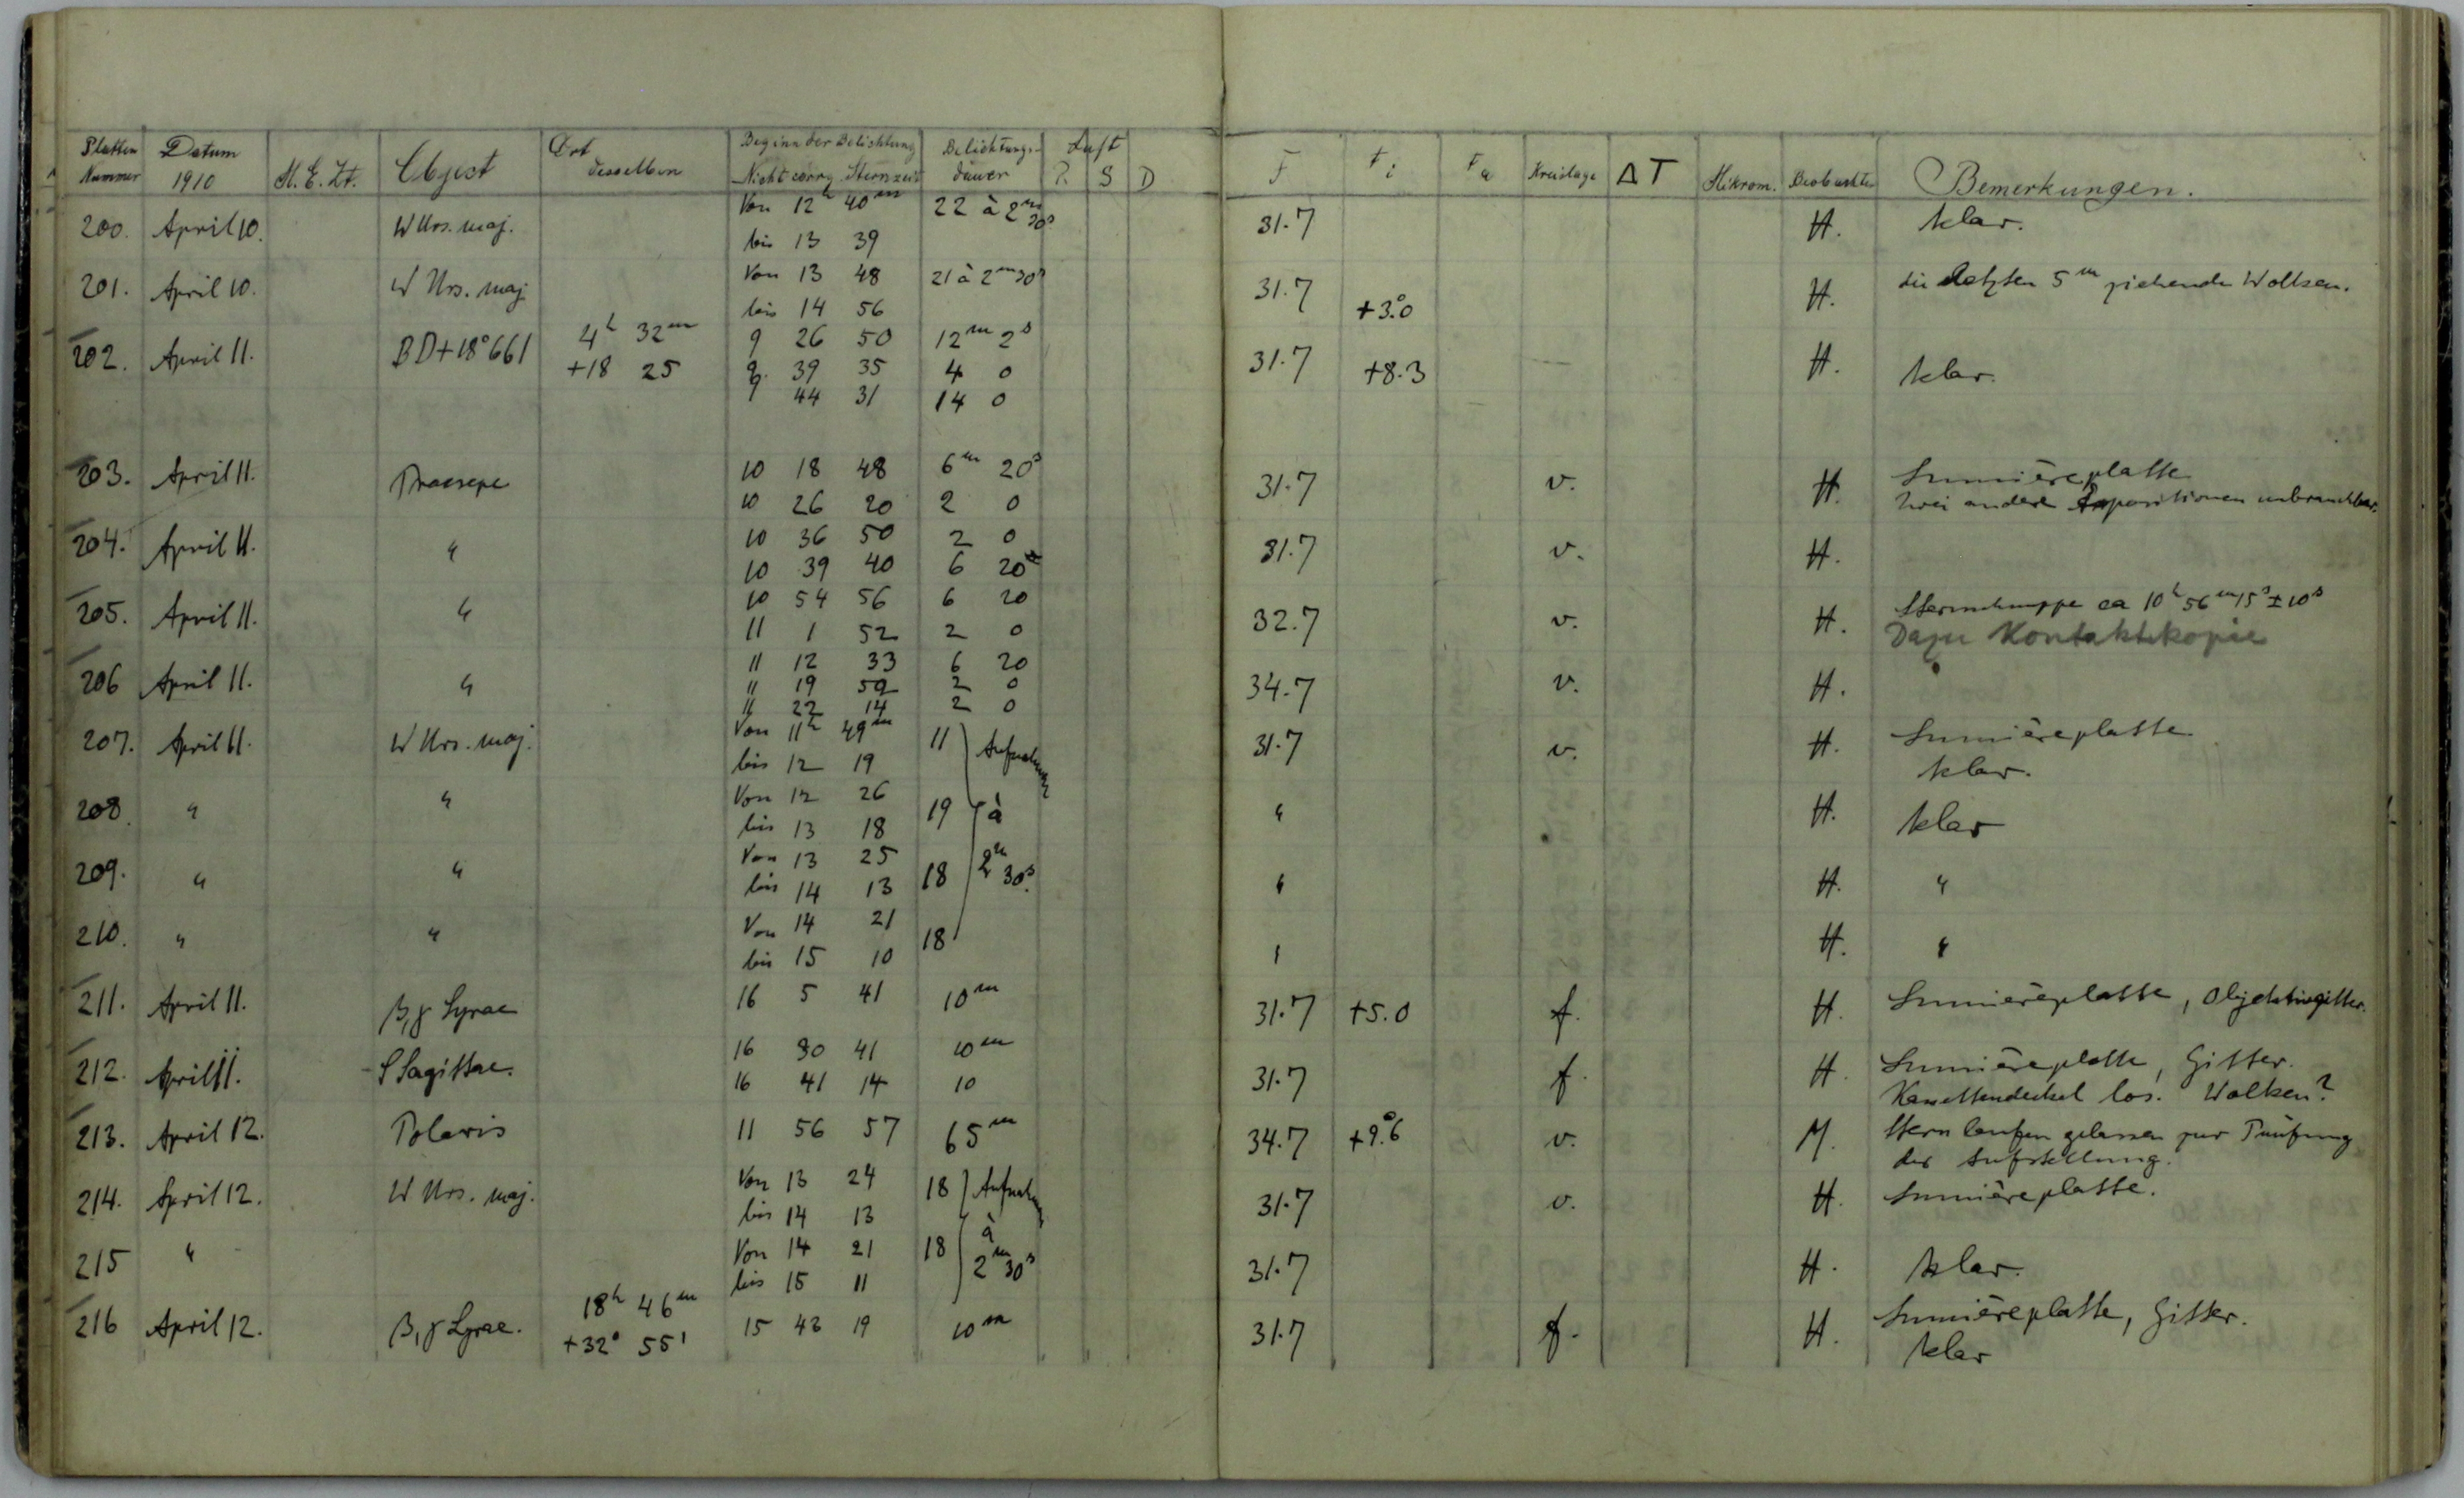 Platten Nummer | Datum 1910 | M. E. Zt. | Object | Ort desselben | Beginn der Belichtung Nicht corrg. Sternzeit | Belichtungs-dauer | Luft R S D | F | F i | F a | Kreislage | Δ T | Mikrom. | Beobachter | Bemerkungen.
200. April 10. W Urs. maj. Von 12h 40m 22 à 2m 30s 31.7 H. klar.
bis 13 39
201. April 10. W Urs. maj. Von 13 48 21 à 2m 30s 31.7 +3°.0 H. die letzten 5m ziehende Wolken.
bis 14 56
202. April 11. BD+18°661 4h 32m 9 26 50 12m 2s 31.7 +8.3 H. klar.
+18 25 9 39 35 4 0
9 44 31 14 0
203. April 11. Praesepe 10 18 48 6m 20s 31.7 v. H. Lumièreplatte
10 26 20 2 0 Zwei andere Expositionen unbrauchbar.
204. April 11. " 10 36 50 2 0 31.7 v. H.
10 39 40 6 20
205. April 11. " 10 54 56 6 20 32.7 v. H. Sternschnuppe ca 10h 56m 15s ± 10s
11 1 52 2 0 Dazu Kontaktkopie
206 April 11. " 11 12 33 6 20 34.7 v. H.
11 19 59 2 0
11 22 14 2 0
207. April 11. W Urs. maj. Von 11h 49m 11 Aufnahmen 31.7 v. H. Lumièreplatte
bis 12 19 klar.
208. " " Von 12 26 19 à " H. klar
bis 13 18
209. " " Von 13 25 18 2m 30s. " H. "
bis 14 13
210. " " Von 14 21 18 " H. "
bis 15 10
211. April 11. β, γ Lyrae 16 5 41 10m 31.7 +5.0 f. H. Lumièreplatte, Objektivgitter.
212. April 11. S Sagittae. 16 30 41 10m 31.7 f. H. Lumièreplatte, Gitter.
16 41 14 10 Kassettendeckel los. Wolken?
213. April 12. Polaris 11 56 57 65m 34.7 +9°.6 v. M. Stern laufen gelassen zur Prüfung
der Aufstellung.
214. April 12. W Urs. maj. Von 13 24 18 Aufnahmen 31.7 v. H. Lumièreplatte.
bis 14 13 à
215 " Von 14 21 18 2m 30s 31.7 H. klar.
bis 15 11
216 April 12. β, γ Lyrae. 18h 46m 15 43 19 10m 31.7 f. H. Lumièreplatte, Gitter.
+32° 55' klar